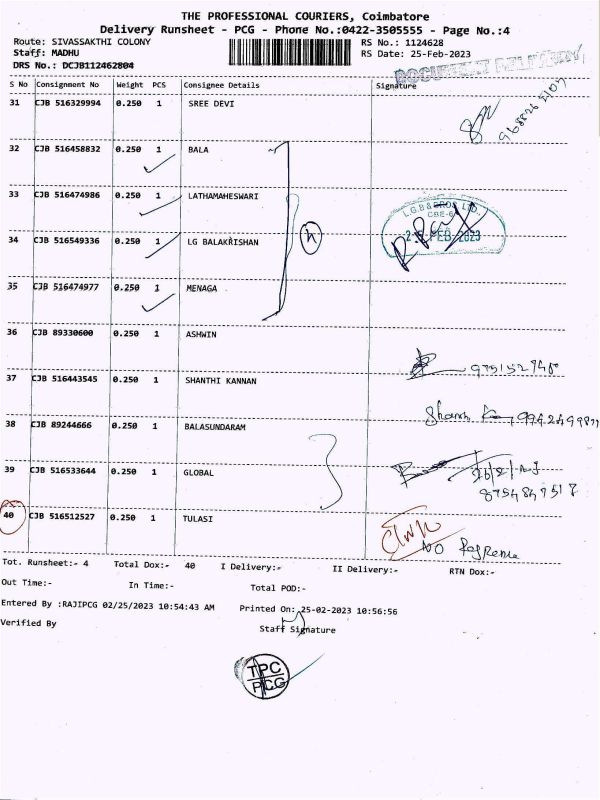 THE PROFESSIONAL COURIERS, Coimbatore
Delivery Runsheet - PCG - Phone No.:0422-3505555 - Page No.:4
Route: SIVASSAKTHI COLONY RS No.: 1124628
Staff: MADHU RS Date: 25-Feb-2023
DRS No.: DCJB112462804
DOCUMENT DELIVERY
S No Consignment No Weight PCS Consignee Details Signature
31 CJB 516329994 0.250 1 SREE DEVI
32 CJB 516458832 0.250 1 BALA
33 CJB 516474986 0.250 1 LATHAMAHESWARI
34 CJB 516549336 0.250 1 LG BALAKRISHAN
L.G.B & BROS LTD.
CBE-6
FEB 2023
35 CJB 516474977 0.250 1 MENAGA
36 CJB 89330600 0.250 1 ASHWIN
37 CJB 516443545 0.250 1 SHANTHI KANNAN
38 CJB 89244666 0.250 1 BALASUNDARAM
39 CJB 516533644 0.250 1 GLOBAL
8754847517
40 CJB 516512527 0.250 1 TULASI
NO
Tot. Runsheet:- 4 Total Dox:- 40 I Delivery:- II Delivery:- RTN Dox:-
Out Time:- In Time:- Total POD:-
Entered By :RAJIPCG 02/25/2023 10:54:43 AM Printed On: 25-02-2023 10:56:56
Verified By Staff Signature
TPC
PCG